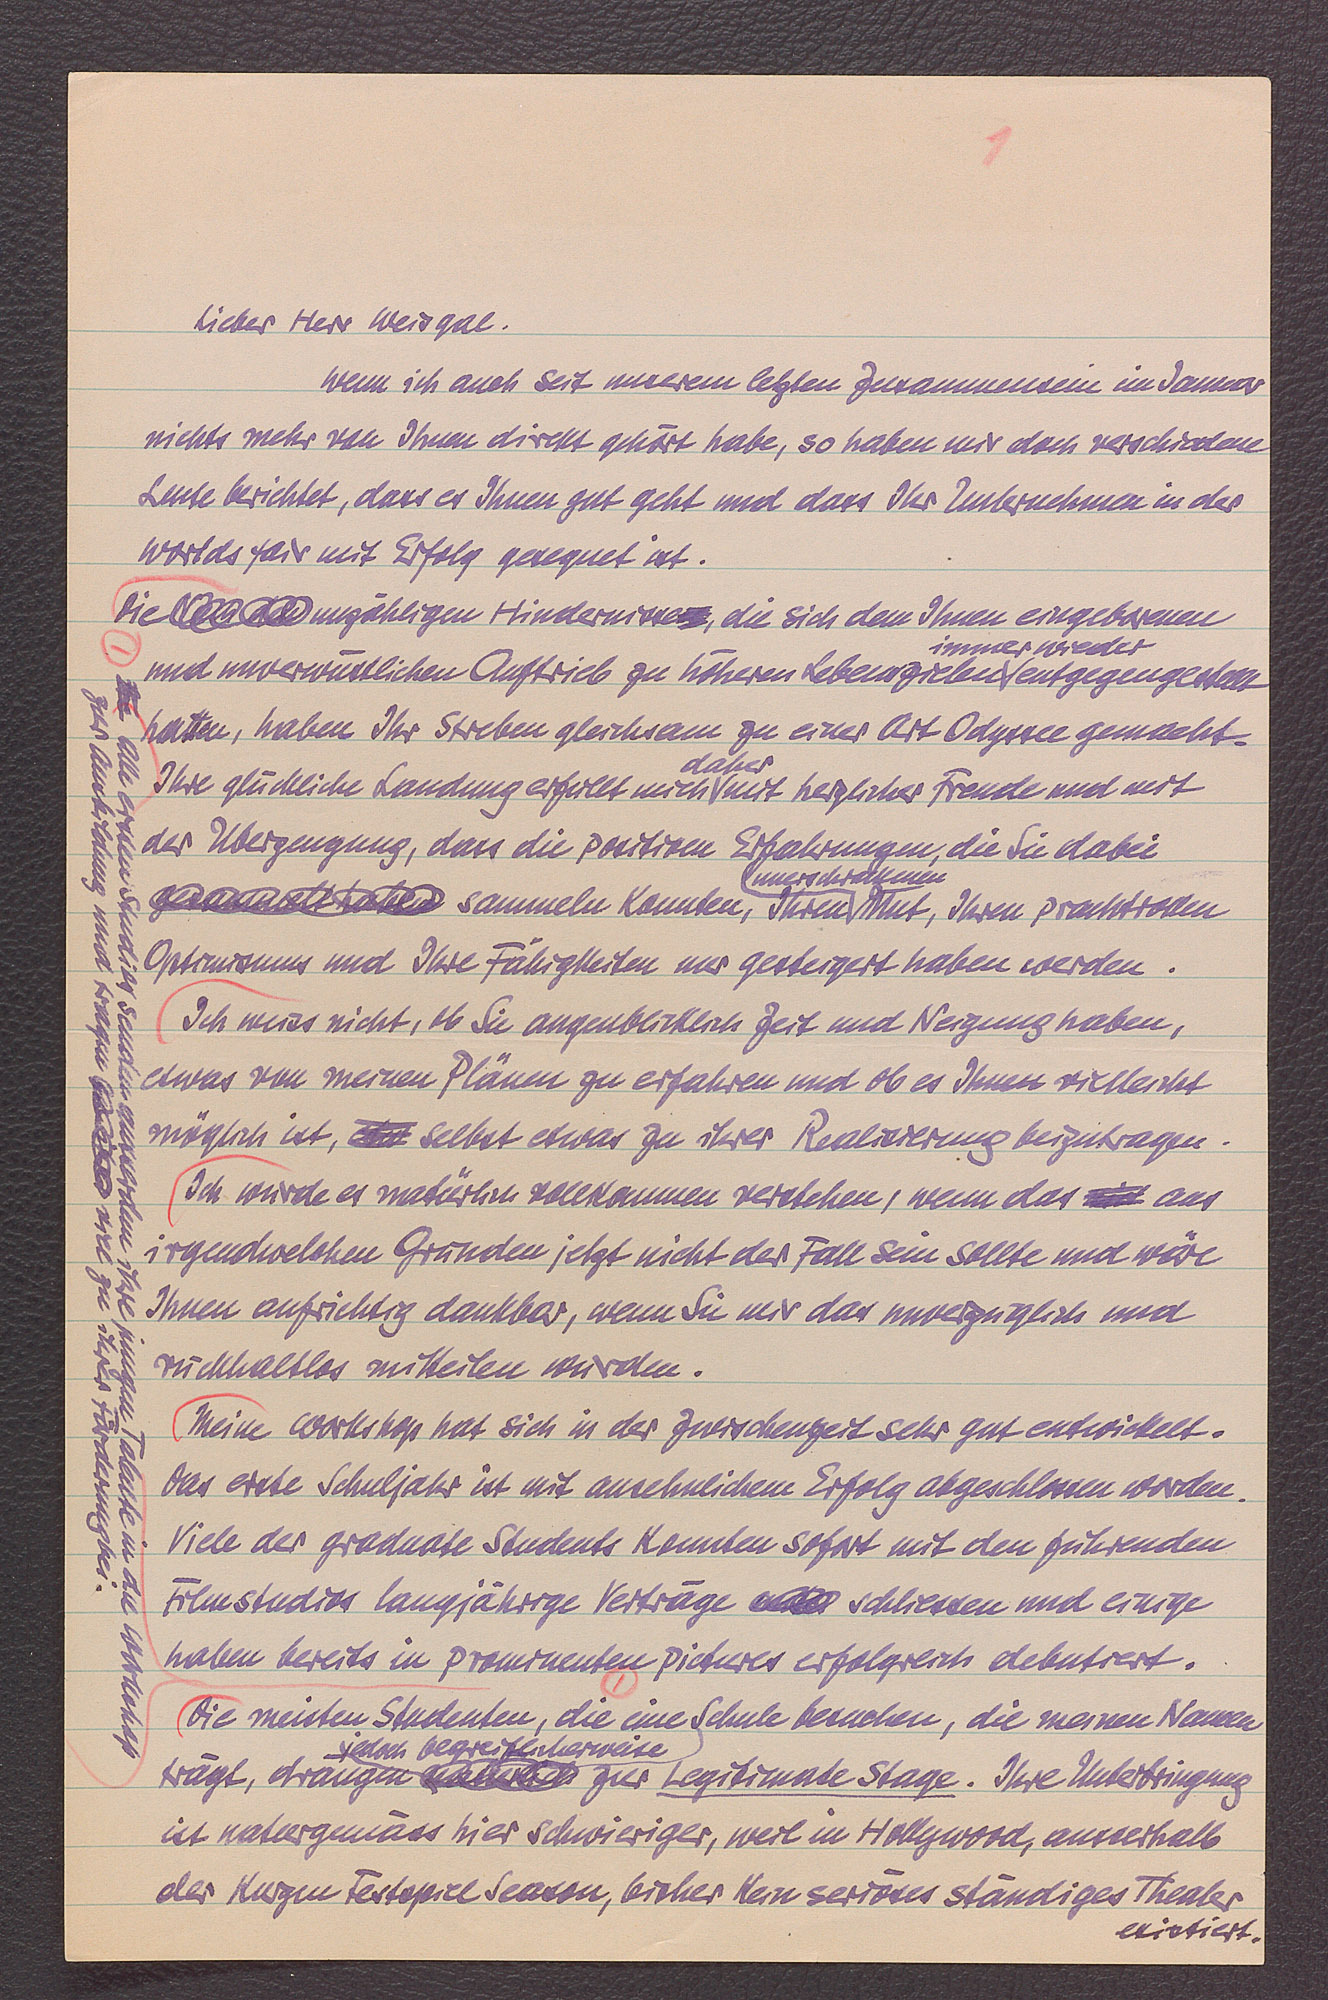 1
Lieber Herr Weisgal.
Wenn ich auch seit unserem letzten Zusammensein im Januar
nichts mehr von Ihnen direkt gehört habe, so haben mir doch verschiedene
Leute berichtet, dass es Ihnen gut geht und dass Ihr Unternehmen in der
Worlds fair mit Erfolg gesegnet ist.
Die unzähligen Hindernisse, die sich dem Ihnen eingeborenen
immer wieder
und unverwüstlichen Auftrieb zu höheren Lebenszielen entgegengestellt
hatten, haben Ihr Streben gleichsam zu einer Art Odyssee gemacht.
daher
Ihre glückliche Landung erfüllt mich mit herzlicher Freude und mit
der Überzeugung, dass die positiven Erfahrungen, die Sie dabei
unerschrockenen
gesammelt haben sammeln konnten, Ihren Mut, Ihren prachtvollen
Optimismus und Ihre Fähigkeiten nur gesteigert haben werden.
Ich weiss nicht, ob Sie augenblicklich Zeit und Neigung haben,
etwas von meinen Plänen zu erfahren und ob es Ihnen vielleicht
möglich ist, selbst etwas zu ihrer Realisierung beizutragen.
Ich würde es natürlich vollkommen verstehen, wenn das aus
irgendwelchen Gründen jetzt nicht der Fall sein sollte und wäre
Ihnen aufrichtig dankbar, wenn Sie mir das unverzüglich und
rückhaltlos mitteilen würden.
Meine Workshop hat sich in der Zwischenzeit sehr gut entwickelt.
Das erste Schuljahr ist mit ansehnlichem Erfolg abgeschlossen worden.
Viele der graduate Students konnten sofort mit den führenden
Filmstudios langjährige Verträge schliessen und einige
haben bereits in prominenten pictures erfolgreich debutiert.
1
Die meisten Studenten, die eine Schule besuchen, die meinen Namen
jedoch begreiflicherweise
trägt, drängen natürlich zur Legitimate Stage. Ihre Unterbringung
ist naturgemäss hier schwieriger, weil in Hollywood, ausserhalb
der kurzen Festspiel Season, bisher kein seriöses ständiges Theater
existiert.
1
Alle ersten Studios senden ausserdem ihre jungen Talente in die Workshop
zur Ausbildung und tragen viel zu ihrer Förderung bei.